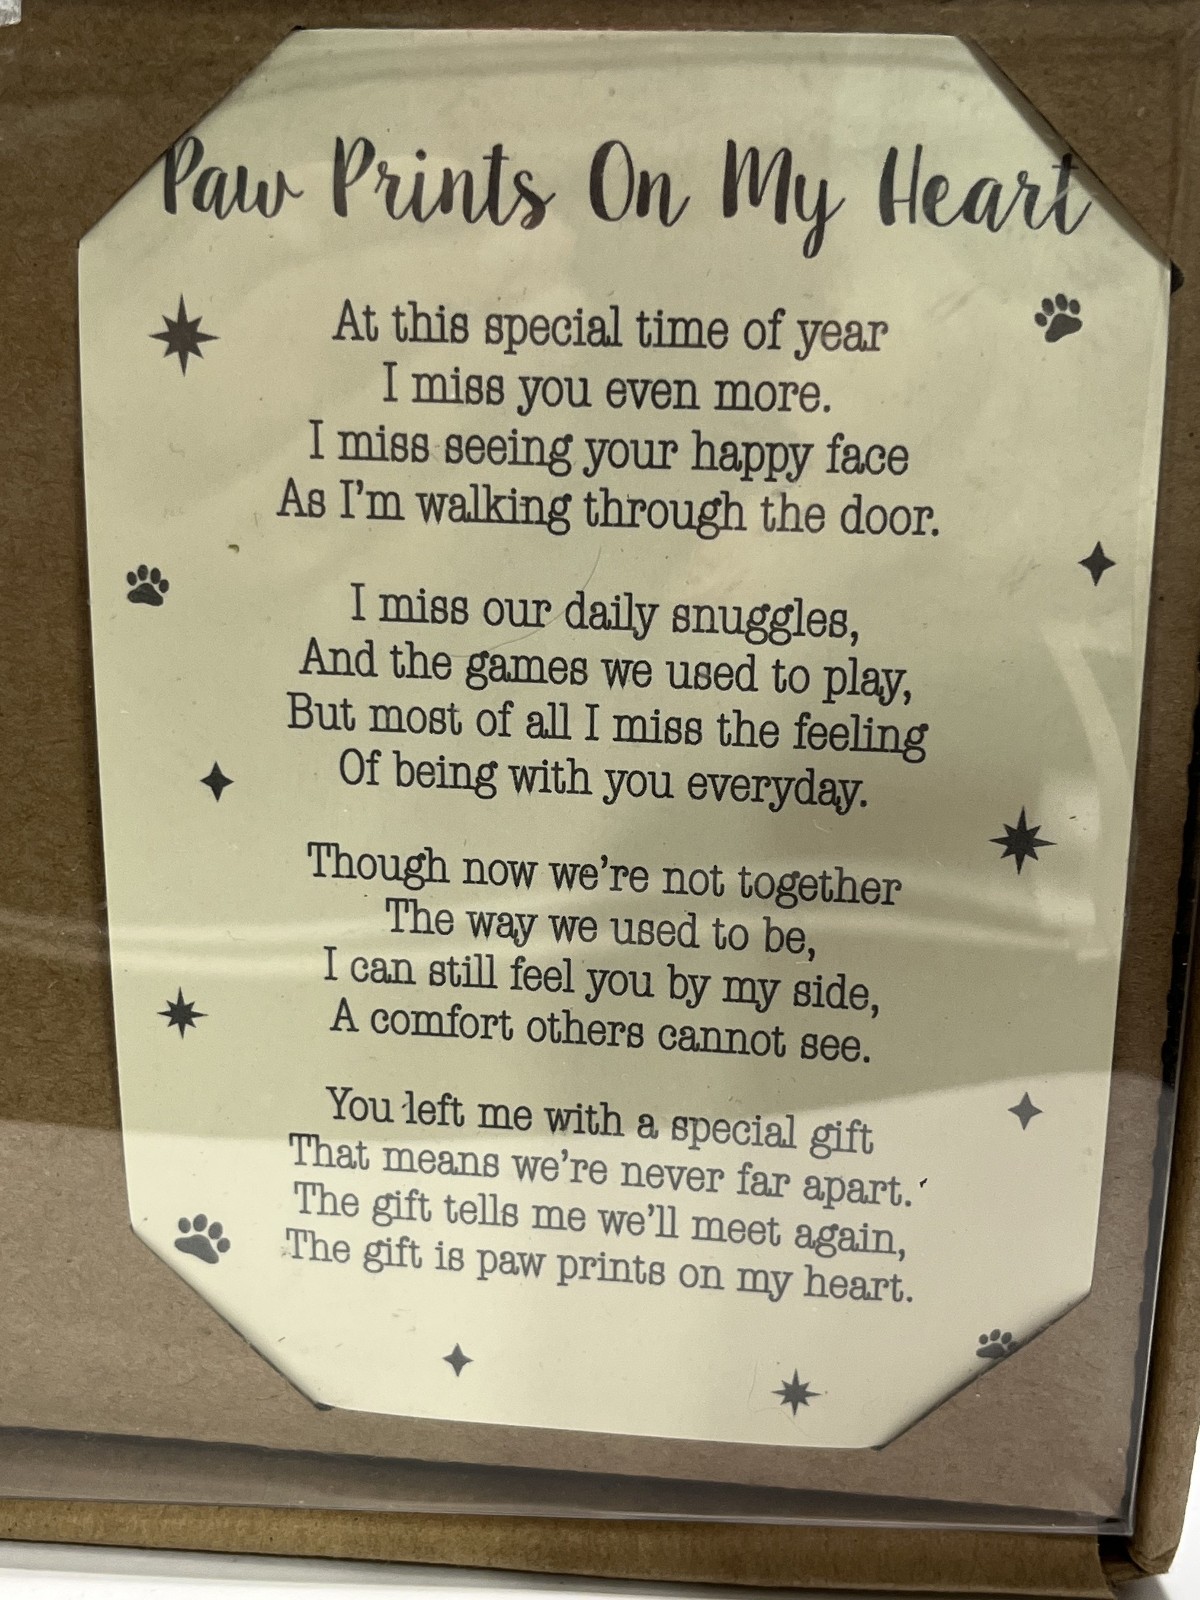 Paw Prints On My Heart
At this special time of year
I miss you even more.
I miss seeing your happy face
As I'm walking through the door.
I miss our daily snuggles,
And the games we used to play,
But most of all I miss the feeling
Of being with you everyday.
Though now we're not together
The way we used to be,
I can still feel you by my side,
A comfort others cannot see.
You left me with a special gift
That means we're never far apart.
The gift tells me we'll meet again,
The gift is paw prints on my heart.